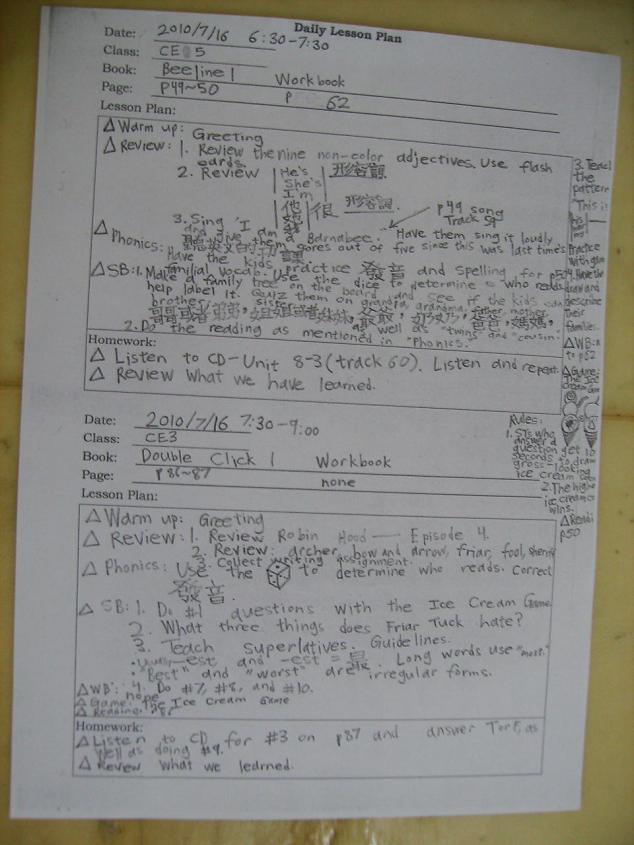 Daily Lesson Plan
Date: 2010/7/16 6:30-7:30
Class: CE 5
Book: Beeline 1 Workbook
Page: P49~50 P 62
Lesson Plan:
△ Warm up: Greeting
△ Review: 1. Review the nine non-color adjectives. Use flash
cards.
2. Review He's 形容詞
She's
I'm
他 很 形容詞.
她
我
3. Sing "I am a Barnabee." Have them sing it loudly
p49 song
Track 59
and give them scores out of five since this was last time's
聽英文的功課.
△ Phonics: Have the kids practice 發音 and spelling for p50
familial vocab. Use the dice to determine who reads.
△ SB: 1. Make a family tree on the board and see if the kids can
help label it. Quiz them on grandpa, grandma, father, mother,
brother, sister
哥哥或者弟弟, 姐姐或者妹妹, 爺爺, 奶奶, 爸爸, 媽媽,
as well as "twins" and "cousin."
2. Do the reading as mentioned in "Phonics."
3. Teach
the
pattern
"This is
his
Practice
with
4. Have the
draw and
describe
their
families.
△ WB:
to p62
△ Game:
The Ice
Cream Game
Rules:
1. STs who
answer a
question get 10
seconds to draw
gross-looking
ice cream
2. The highe
ice cream
wins.
△ Readi
p50
Homework:
△ Listen to CD-Unit 8-3 (track 60). Listen and repeat.
△ Review what we have learned.
Date: 2010/7/16 7:30-9:00
Class: CE3
Book: Double Click 1 Workbook
Page: P86~87 none
Lesson Plan:
△ Warm up: Greeting
△ Review: 1. Review Robin Hood — Episode 4.
2. Review: archer, bow and arrow, friar, fool, sheriff
3. Collect writing assignment.
△ Phonics: Use the to determine who reads. Correct
發音.
△ SB: 1. Do #1 questions with the Ice Cream Game
2. What three things does Friar Tuck hate?
3. Teach superlatives. Guidelines.
• Usually -est and -est = 最. Long words use "most."
• "Best" and "worst" are irregular forms.
4. Do #7, #8, and #10.
△ WB: none
△ Game: The Ice Cream Game
△ Reading: p87
Homework:
△ Listen to CD for #3 on p87 and answer T or F, as
well as doing #9.
△ Review what we learned.